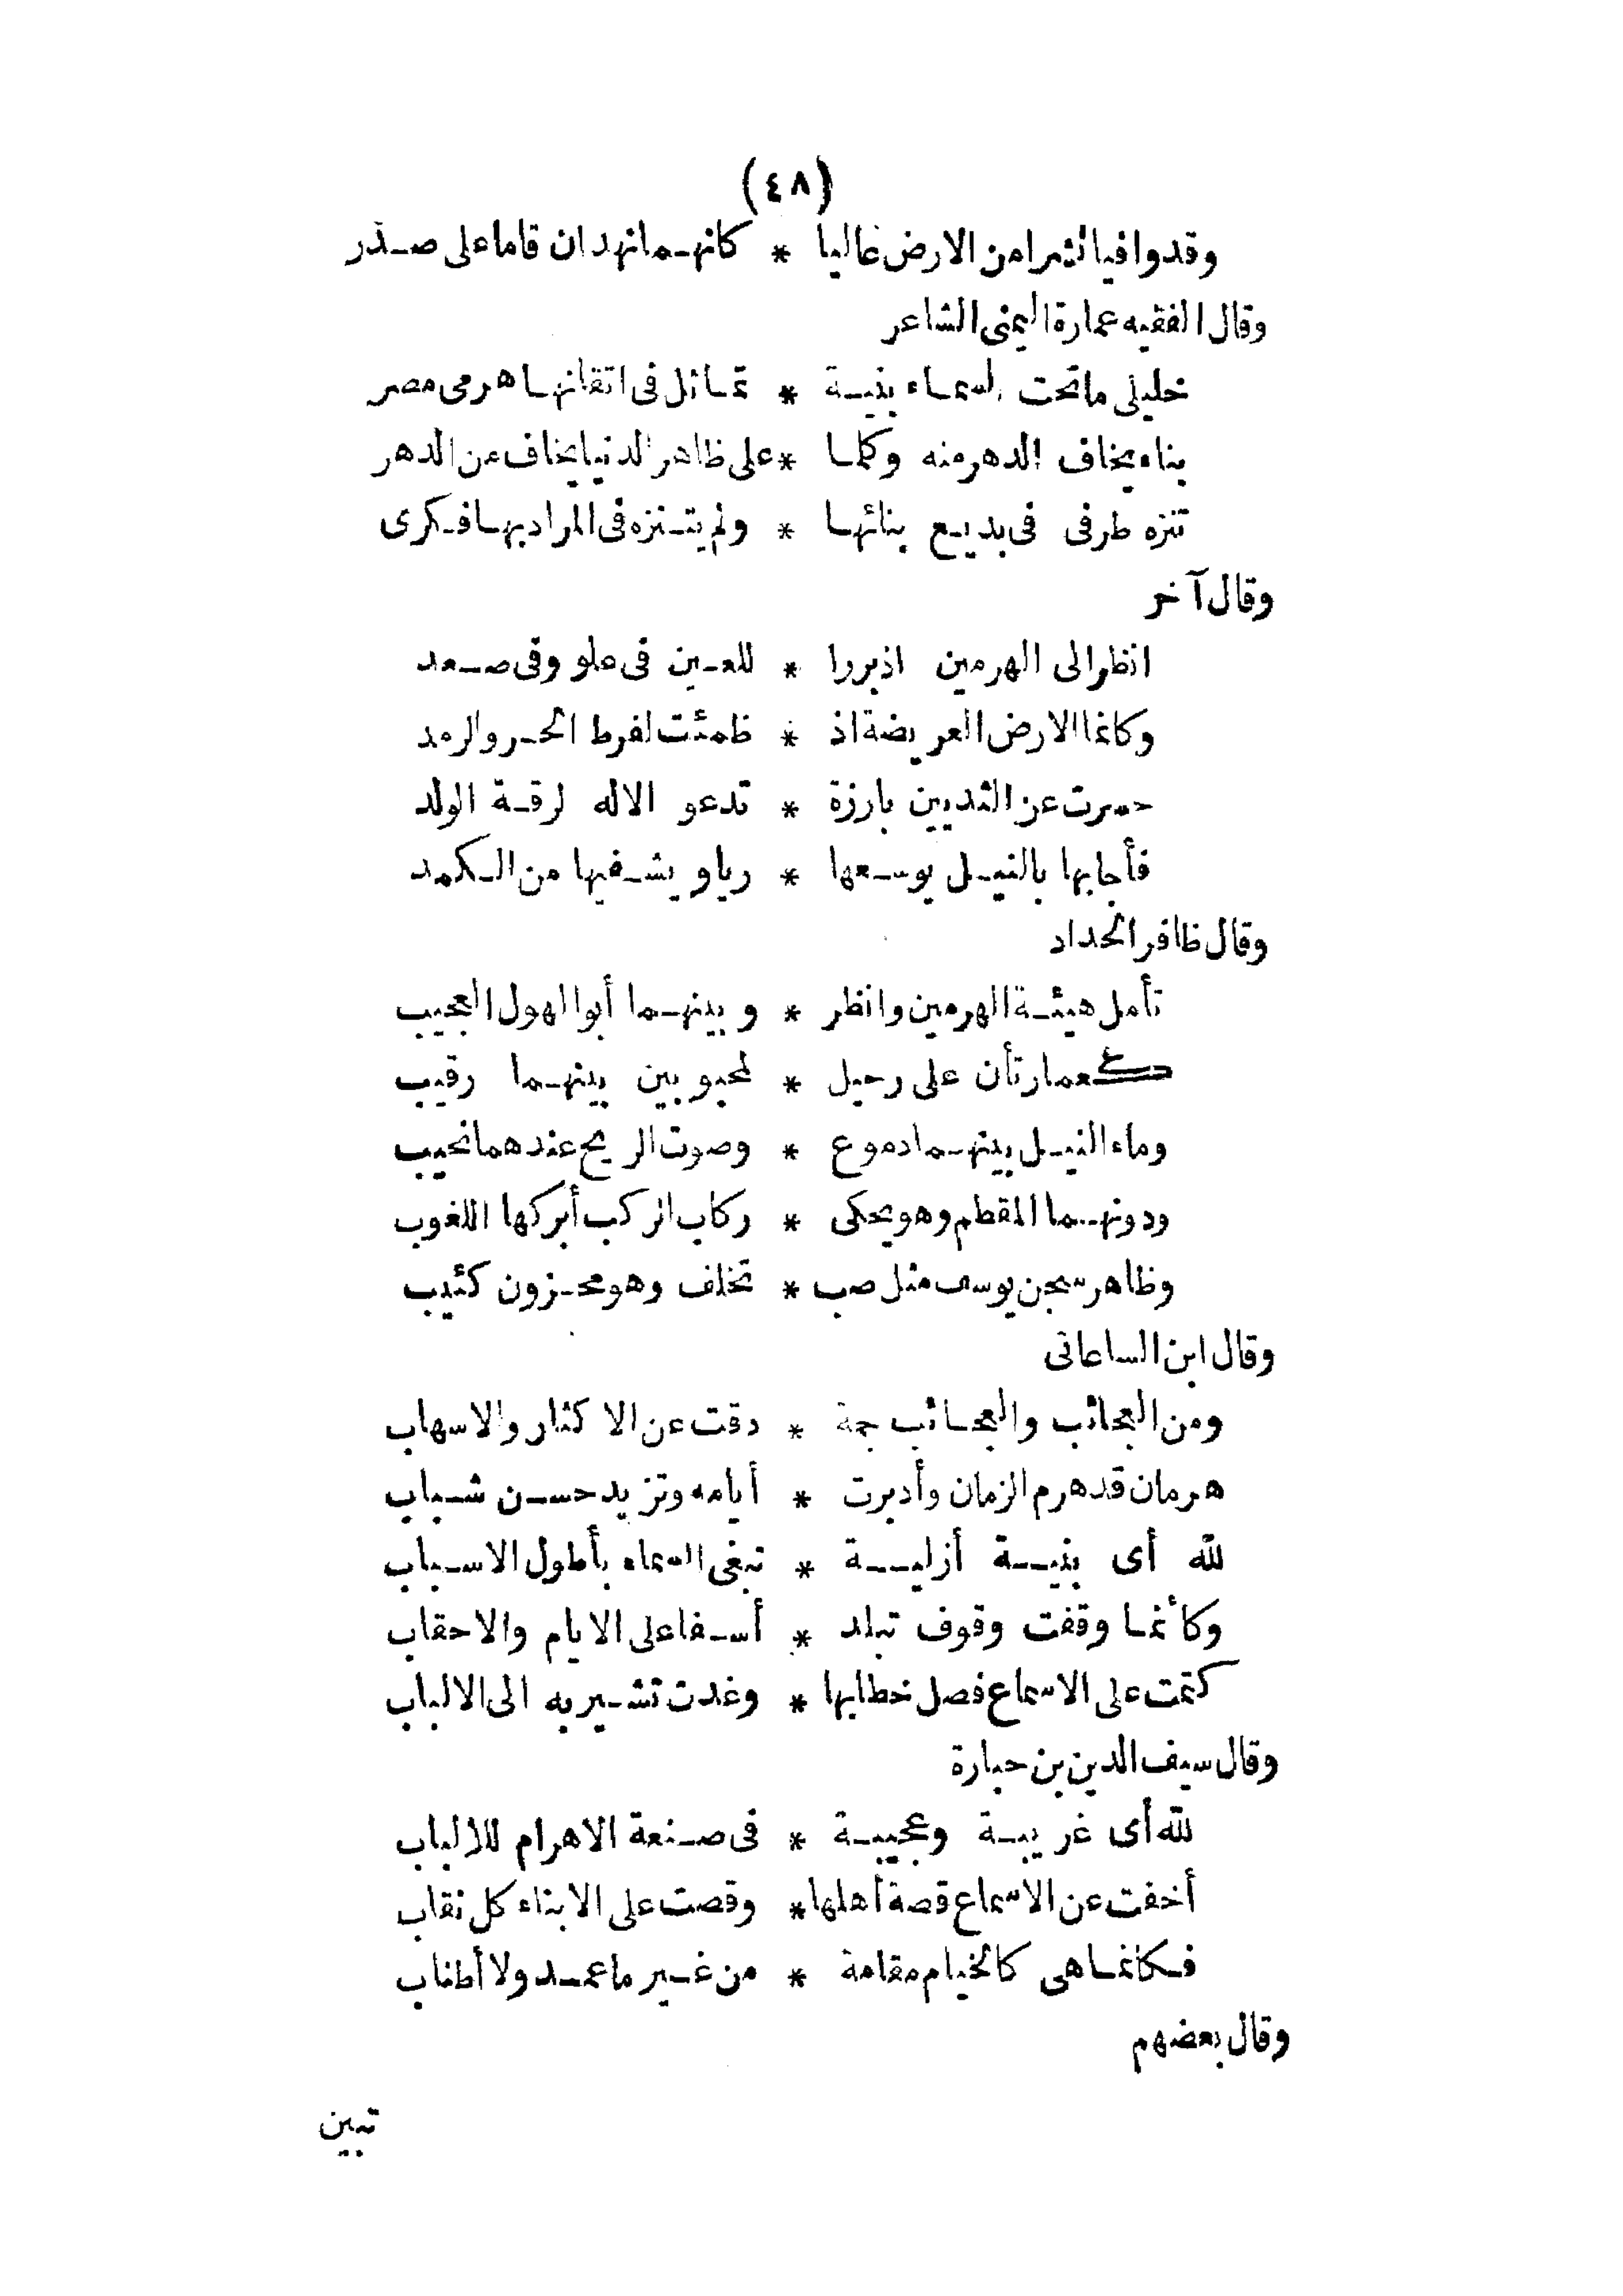 (٤٨)
وقد وافيا نشزا من الارض عاليا * كانهما نهدان قاما على صدر
وقال الفقيه عمارة اليمنى الشاعر
خليلى ما تحت السماء بنية * تماثل فى اتقانها هرمى مصر
بناء يخاف الدهر منه وكلما * على ظاهر الدنيا يخاف من الدهر
تنزه طرفى فى بديع بنائها * ولم يتنزه فى المراد بها فكرى
وقال آخر
انظر الى الهرمين اذ برزا * للعين فى علو وفى صعد
وكانما الارض العريضة اذ * ظمئت لفرط الحر والرمد
حسرت عن الثديين بارزة * تدعو الاله لرقة الولد
فأجابها بالنيل يوسعها * ريا ويشفيها من الكمد
وقال ظافر الحداد
تأمل هيئة الهرمين وانظر * وبينهما أبو الهول العجيب
كعمارتأن على رحيل * لمحبوبين بينهما رقيب
وماء النيل بينهما دموع * وصوت الريح عندهما نحيب
ودونهما المقطم وهو يحكى * ركاب الركب أبركها اللغوب
وظاهر سجن يوسف مثل صب * تخلف وهو محزون كئيب
وقال ابن الساعاتى
ومن العجائب والعجائب جمة * دقت عن الاكثار والاسهاب
هرمان قد هرم الزمان وأدبرت * أيامه وتزيد حسن شباب
لله أى بنية أزلية * تبغى السماء بأطول الاسباب
وكأنما وقفت وقوف تبلد * أسفا على الايام والاحقاب
كتمت على الاسماع فصل خطابها * وغدت تشير به الى الالباب
وقال سيف الدين بن حبارة
لله أى غريبة وعجيبة * فى صنعة الاهرام للالباب
أخفت عن الاسماع قصة أهلها * وقصت على الابناء كل نقاب
فكانما هى كالخيام مقامة * من غير ما عمد ولا أطناب
وقال بعضهم
تبين